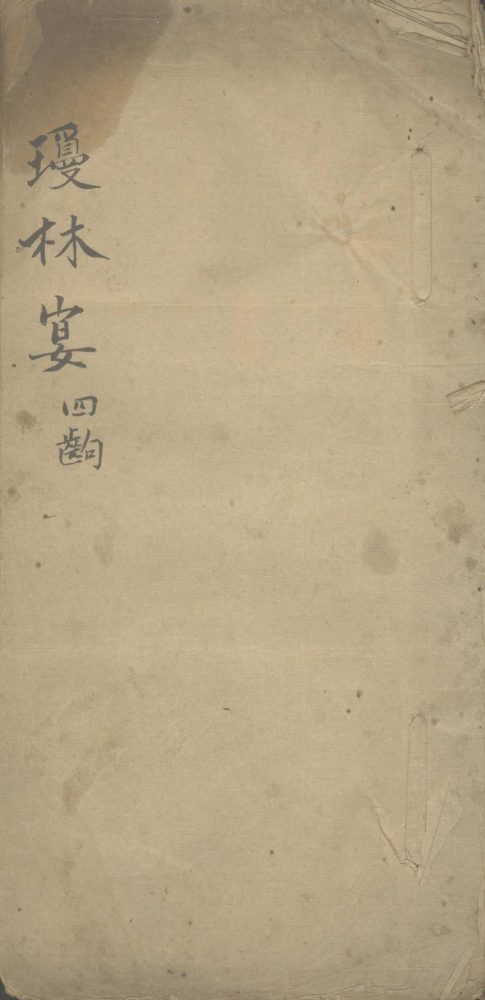 瓊林宴
四齣